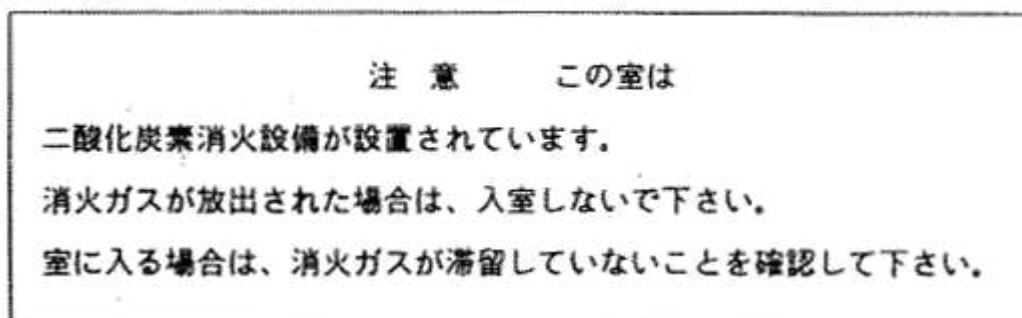 注　意　　　この室は
二酸化炭素消火設備が設置されています。
消火ガスが放出された場合は、入室しないで下さい。
室に入る場合は、消火ガスが滞留していないことを確認して下さい。